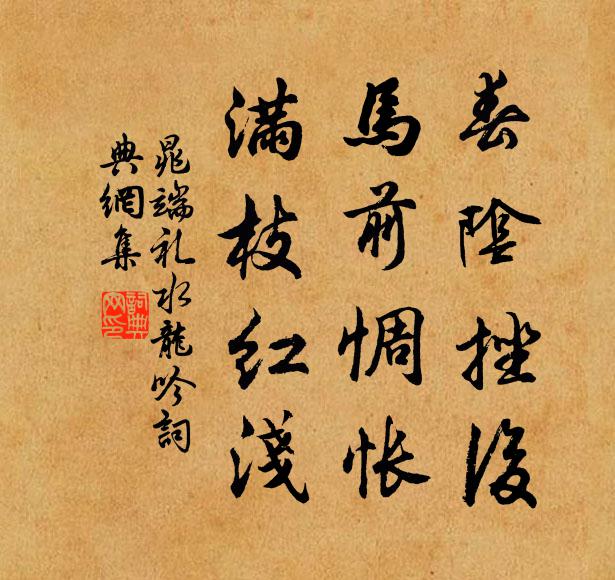 春陰挫後
馬前惆悵
滿枝紅淺
晁端礼水龍吟詞
典網集
詞典
网印